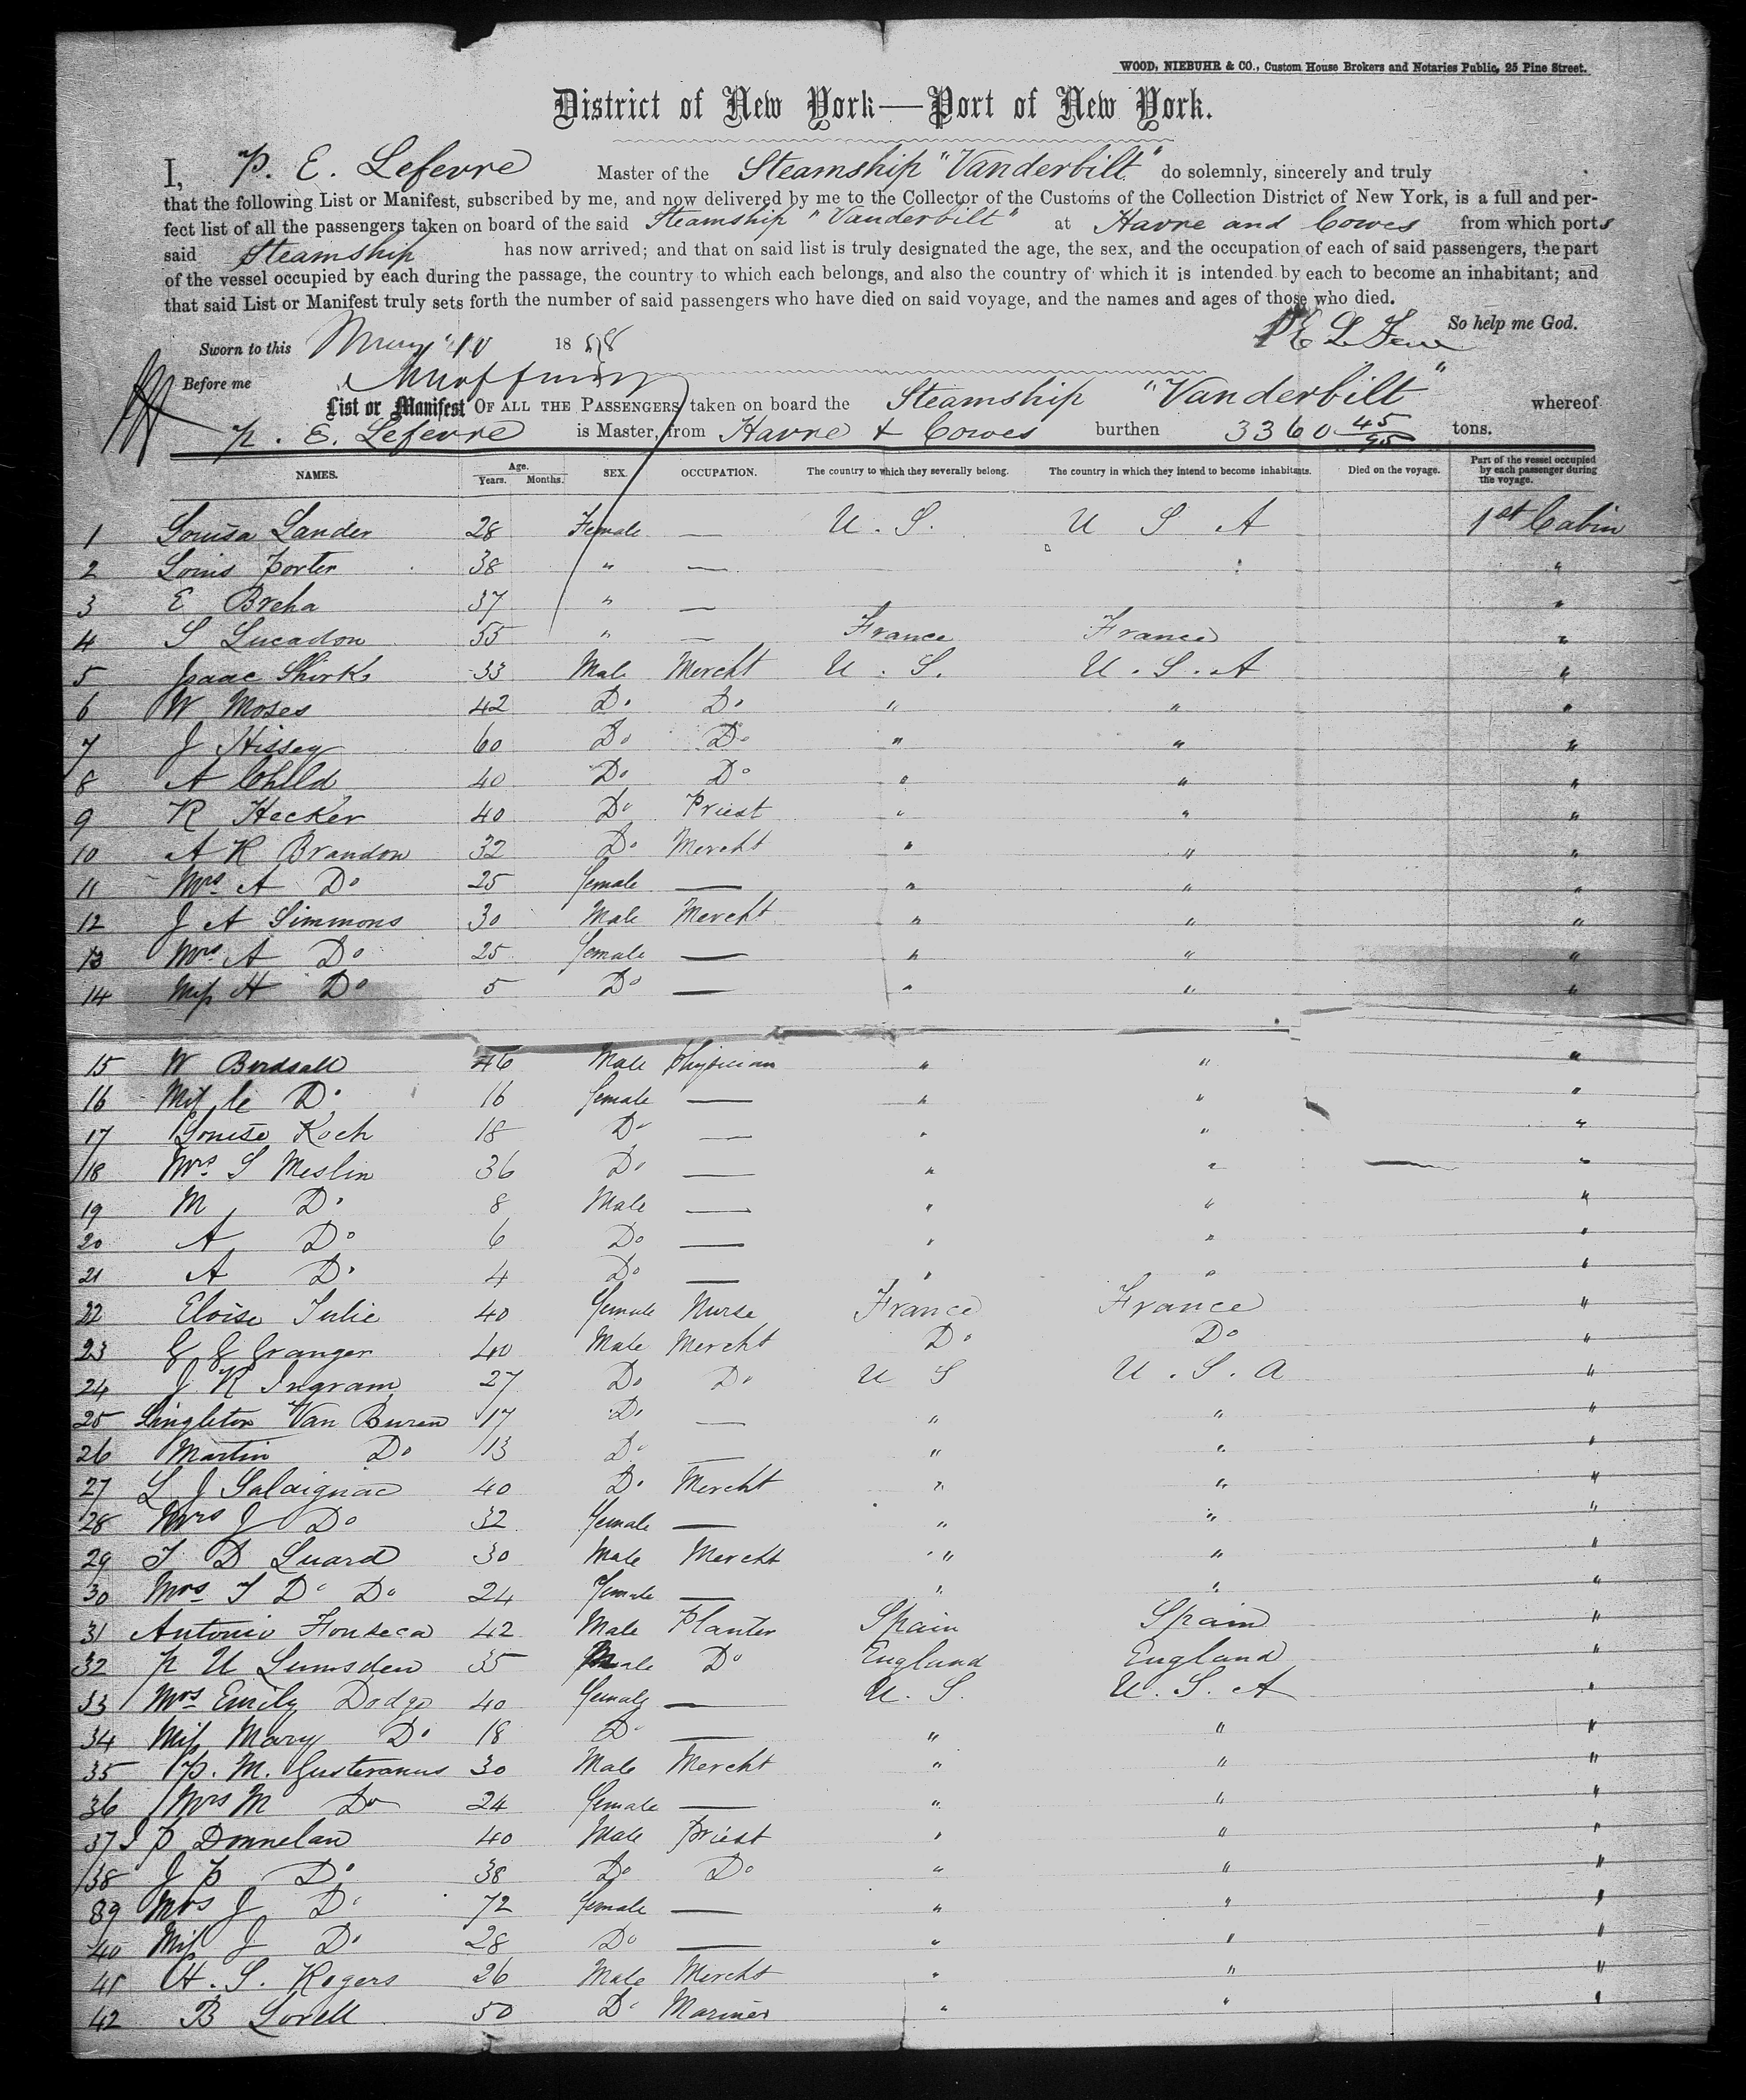 WOOD, NIEBUHR & CO., Custom House Brokers and Notaries Public, 25 Pine Street.
District of New York—Port of New York.
I, P. E. Lefevre Master of the Steamship "Vanderbilt" do solemnly, sincerely and truly
that the following List or Manifest, subscribed by me, and now delivered by me to the Collector of the Customs of the Collection District of New York, is a full and per-
fect list of all the passengers taken on board of the said Steamship "Vanderbilt" at Havre and Cowes from which ports
said Steamship has now arrived; and that on said list is truly designated the age, the sex, and the occupation of each of said passengers, the part
of the vessel occupied by each during the passage, the country to which each belongs, and also the country of which it is intended by each to become an inhabitant; and
that said List or Manifest truly sets forth the number of said passengers who have died on said voyage, and the names and ages of those who died.
So help me God.
Sworn to this May 10 1858
Before me
List or Manifest OF ALL THE PASSENGERS taken on board the Steamship "Vanderbilt" whereof
P. E. Lefevre is Master, from Havre & Cowes burthen 3360 45/95 tons.
NAMES. Age. Years. Months. SEX. OCCUPATION. The country to which they severally belong. The country in which they intend to become inhabitants. Died on the voyage. Part of the vessel occupied by each passenger during the voyage.
1 Louisa Lander 28 Female — U. S. U S A 1st Cabin
2 Louis Porter 38 " — "
3 E Breha 37 " — "
4 S Lucadon 55 " — France France "
5 Isaac Shirks 33 Male Mercht U. S. U. S. A "
6 W Moses 42 Do Do " " "
7 J Hissey 60 Do Do " " "
8 A Child 40 Do Do " " "
9 R Hecker 40 Do Priest " " "
10 A H Brandon 32 Do Mercht " " "
11 Mrs A Do 25 female — " " "
12 J A Simmons 30 Male Mercht " " "
13 Mrs A Do 25 female — " " "
14 Miss H Do 5 Do — " " "
15 W Birdsall 46 Male Physician " " "
16 Miss C Do 16 female — " " "
17 Louise Koch 18 Do — " " "
18 Mrs S Meslin 36 Do — " " "
19 M Do 8 Male — " " "
20 A Do 6 Do — " " "
21 A Do 4 Do — " " "
22 Eloise Julie 40 female Nurse France France "
23 G G Granger 40 Male Mercht Do Do "
24 J R Ingram 27 Do Do U S U. S. A "
25 Singleton Van Buren 17 Do — " " "
26 Martin Do 13 Do — " " "
27 L J Salaignac 40 Do Mercht " " "
28 Mrs J Do 32 female — " " "
29 T D Luard 30 Male Mercht " " "
30 Mrs T D Do 24 female — " " "
31 Antonio Fonseca 42 Male Planter Spain Spain "
32 P U Lumsden 35 Male Do England England "
33 Mrs Emily Dodge 40 female — U. S. U. S. A "
34 Miss Mary Do 18 Do — " " "
35 P. M. 30 Male Mercht " " "
36 Mrs M Do 24 female — " " "
37 J P Donnelan 40 Male Priest " " "
38 J P Do 38 Do Do " " "
39 Mrs J Do 72 female — " " "
40 Miss J Do 28 Do — " " "
41 H. S. Rogers 26 Male Mercht " " "
42 B Lovell 50 Do Mariner " " "